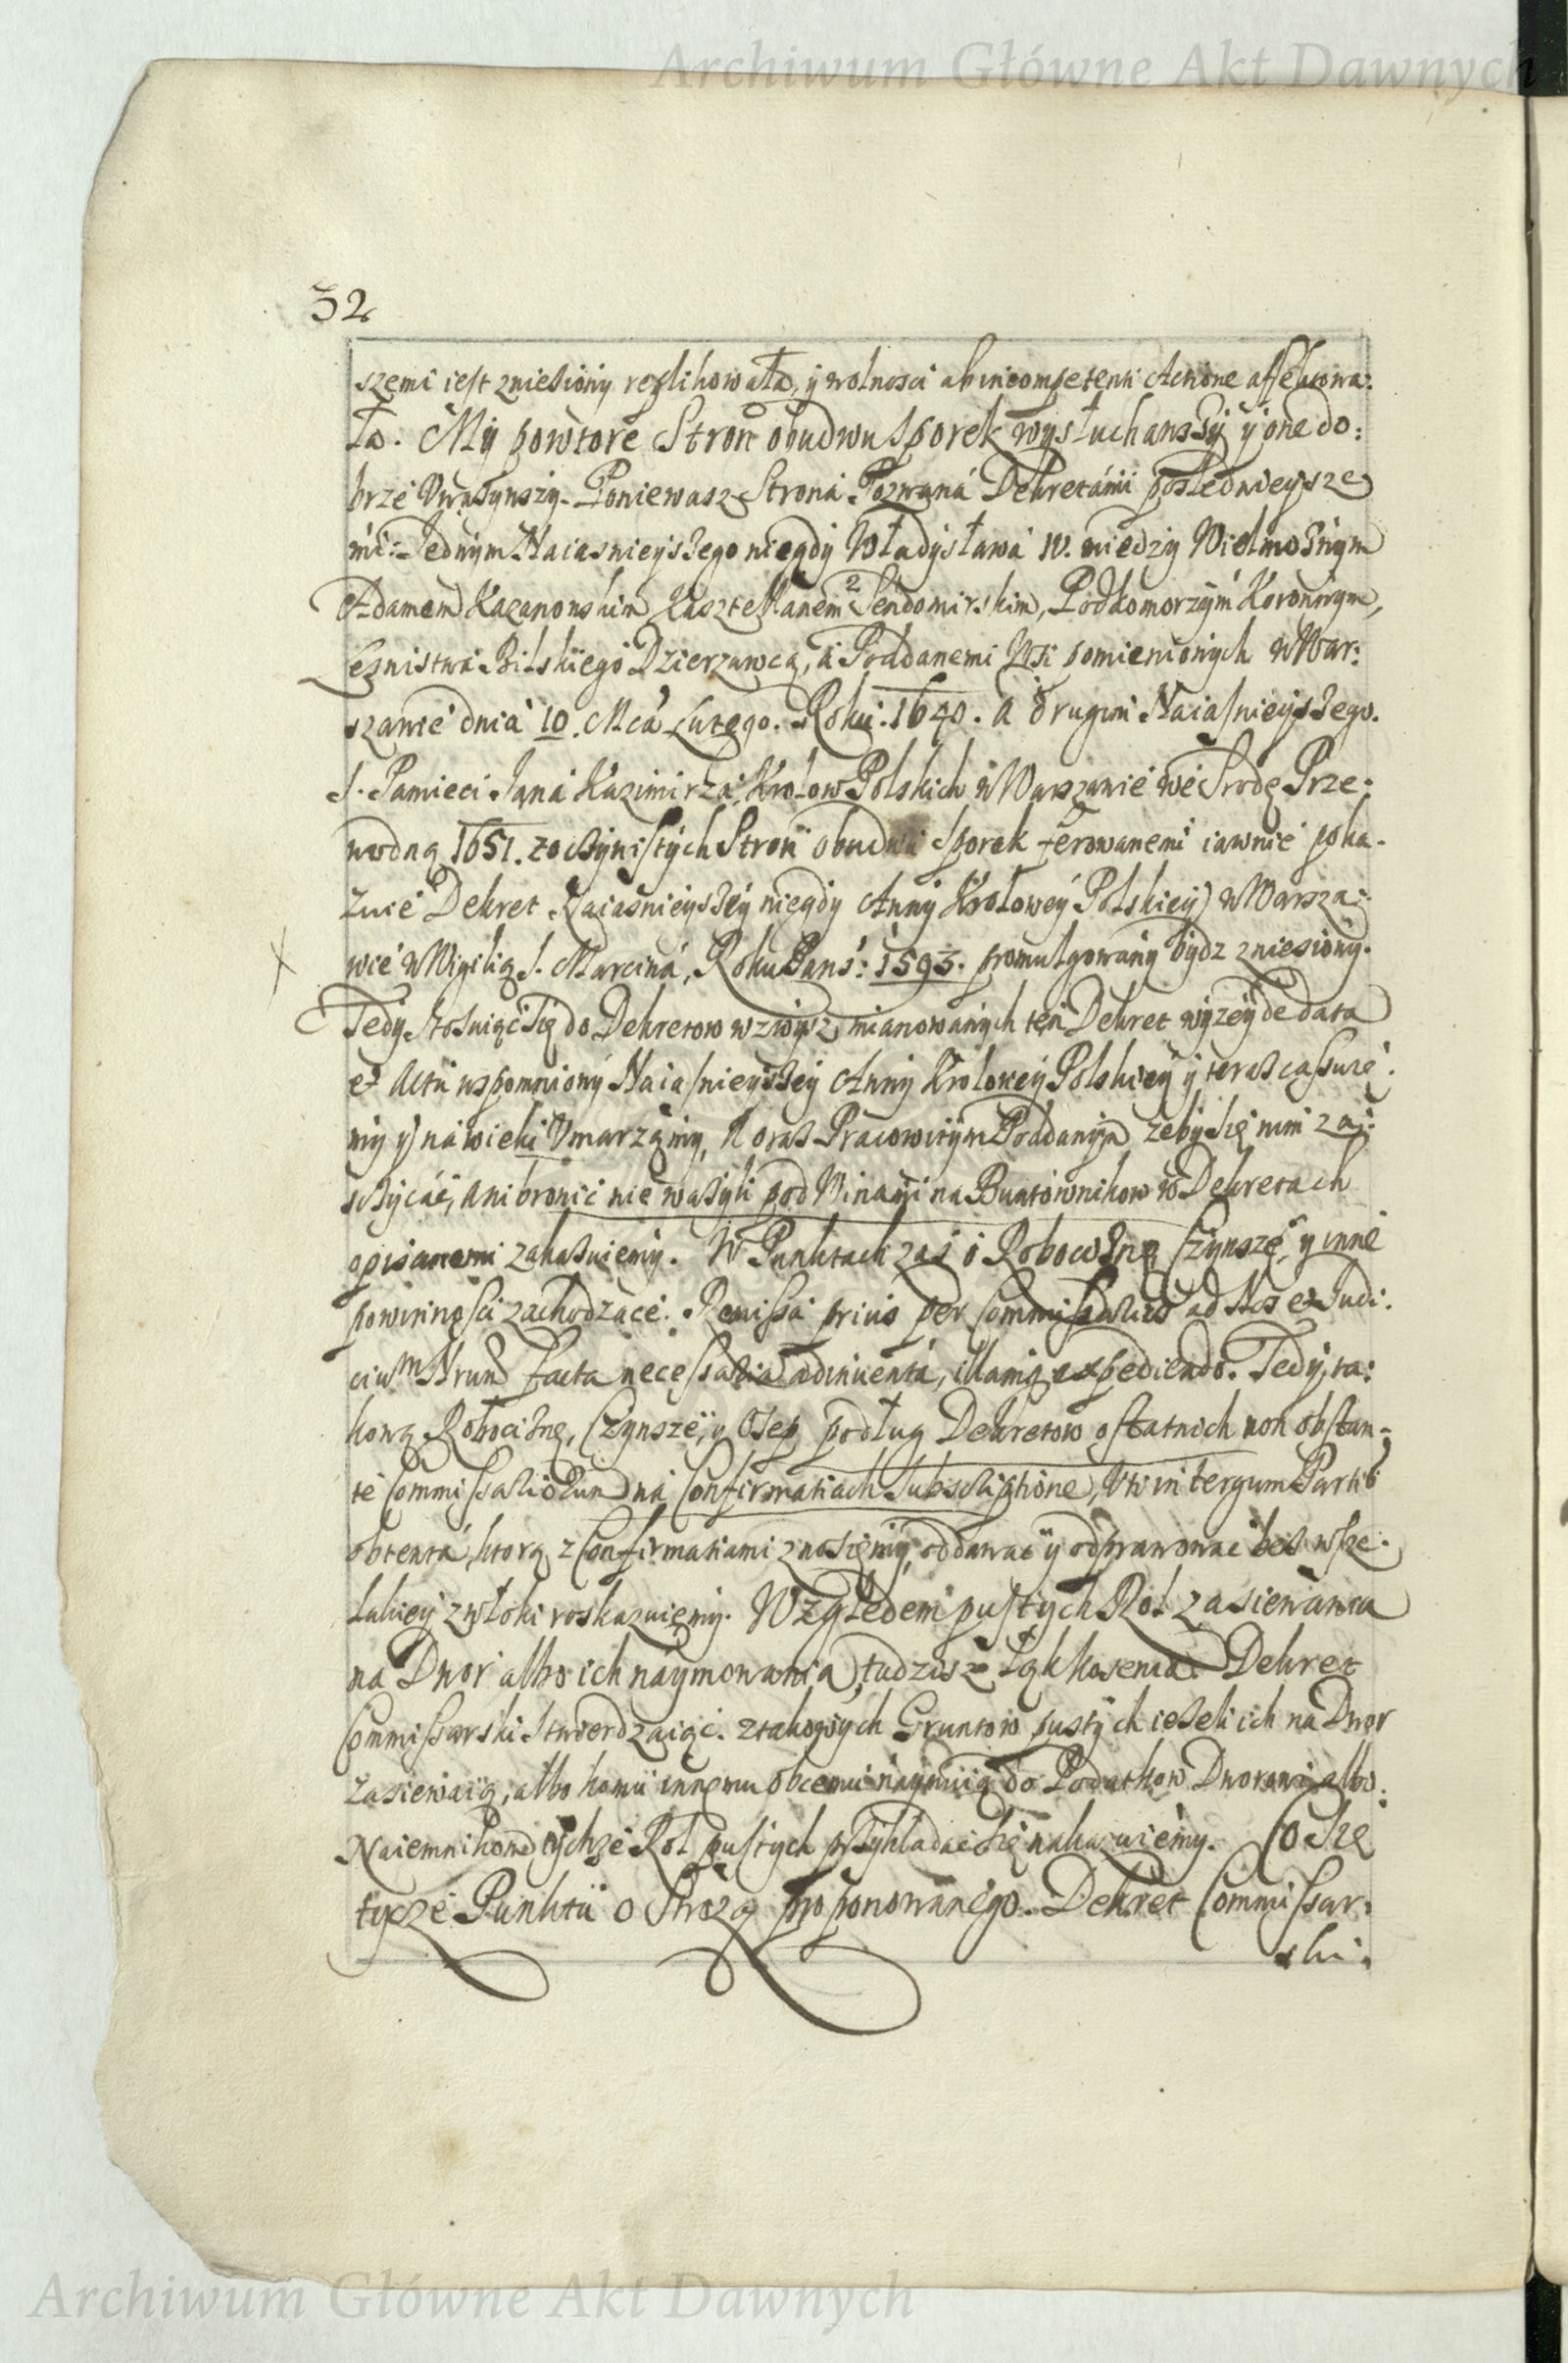 Archiwum Główne Akt Dawnych
32
szemi iest zniesiony replikowała, y wolnosci ab incompetenti Actione affektowa:
ła. My powtore Stron obudwu sporek wysłuchawszy y one do:
brze Uważywszy. Poniewasz Strona Pozwana Dekretami poslednieysze
mi: Jednym Naiasnieyszego niegdy Władysława IV. miedzy Wielmożnym
Adamem Kazanowskim, Kasztellanem Sendomirskim, Podkomorzym Koronnym,
Lesnistwa Bilskiego Dzierzawcą, a Poddanemi Wsi pomienionych w War:
szawie dnia 10. Mca Lutego. Roku: 1640. a drugim Naiasnieyszego.
S. Pamieci Jana Kazimirza, Krolow Polskich w Warszawie we Srodę Prze:
wodną 1651. zoczywistych Stron obudwu sporek ferowanemi iawnie poka-
zuie Dekret Naiasnieyszey niegdy Anny Krolowey Polskiey w Warsza:
wie w Wigilią S. Marcina, Roku Pans: 1593. promulgowany bydz zniesiony.
Tedy stosuiąc się do Dekretow wzwysz mianowanych ten Dekret wyzey de data
et Actu wspomniony Naiasnieyszey Anny Krolowey Polskiey y teraz cassuie:
my y na wieki Umarzamy, A oraz Pracowitym Poddanym zeby się nim zai:
szczycać, ani bronic nie wazyli pod Winami na Buntownikow w Dekretach
opisanemi zakazuiemy. W Punktach zas o Robociznę, Czynsze, y inne
powinnosci zachodzące. Remissa prius per Commissarios ad Nos et Judi:
cium Nrum facta necessaria adinventa, illamq expediendo. Tedy ta:
kową Robociznę, Czynsze, y Osep podług Dekretow ostatnich non obstan-
te Commissariorum na Confirmatiach Subscriptione, Uti in tergum Partib
obtenta, ktorą z Confirmatiami znosiemy, oddawac y odprawowac bez wsze:
lakiey zwłoki roskazuiemy. Względem pustych Rol zasiewania
na Dwor albo ich naymowania, tudziesz Łąk koszenia Dekret
Commissarski stwierdzaiąc. z takowych Gruntow pustych iezeli ich na Dwor
zasiewaią, albo komu innemu obcemu naymuią do Podatkow Dworowi albo:
Naiemnikowi tychze Rol pustych przykladac się nakazuiemy. Co się
tycze Punktu o Strozą proponowanego. Dekret Commissar:
ski:
Archiwum Główne Akt Dawnych